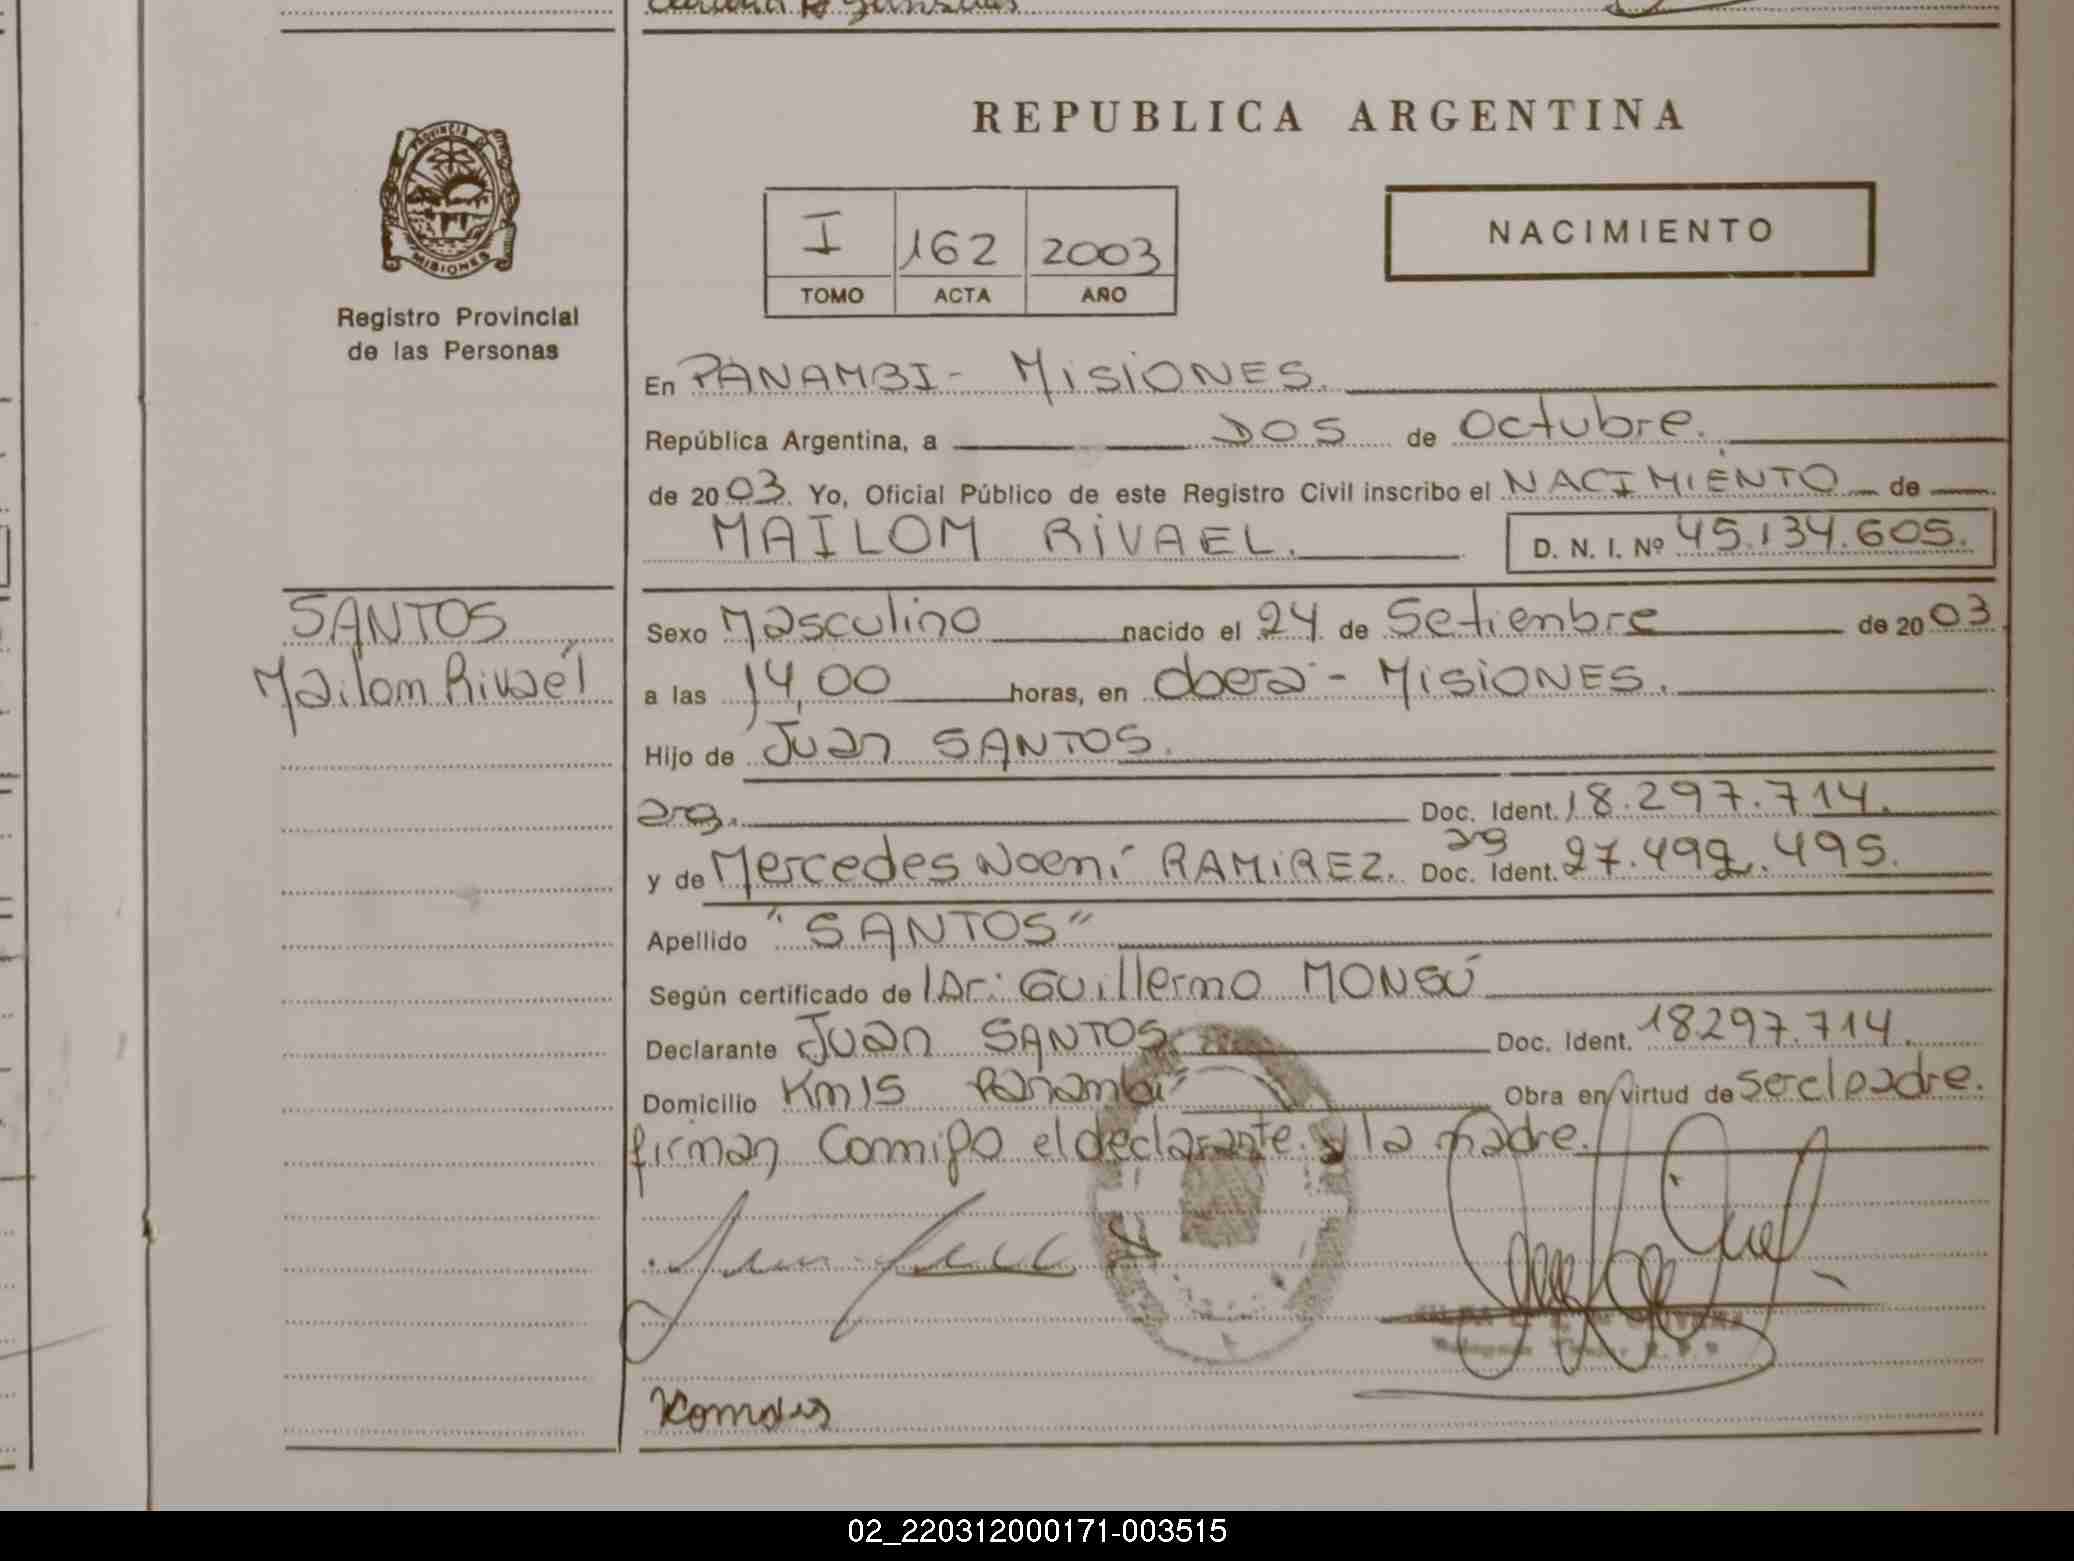 REPUBLICA ARGENTINA
PROVINCIA DE
MISIONES
Registro Provincial
de las Personas
I 162 2003
TOMO ACTA AÑO
NACIMIENTO
En PANAMBI - MISIONES.
República Argentina, a DOS de Octubre.
de 2003. Yo, Oficial Público de este Registro Civil inscribo el NACIMIENTO de
MAILOM RIVAEL.
D. N. I. Nº 45.134.605.
SANTOS
Mailom Rivaél
Sexo Masculino nacido el 24 de Setiembre de 2003
a las 14,00 horas, en Oberá - MISIONES.
Hijo de Juan SANTOS.
arg. Doc. Ident. 18.297.714.
y de Mercedes Noemí RAMIREZ. arg Doc. Ident. 27.492.495.
Apellido "SANTOS"
Según certificado de Dr: Guillermo MONSÚ
Declarante Juan SANTOS Doc. Ident. 18297.714.
Domicilio Km 15 Panambí Obra en virtud de ser el padre.
firman conmigo el declarante y la madre.
02_220312000171-003515